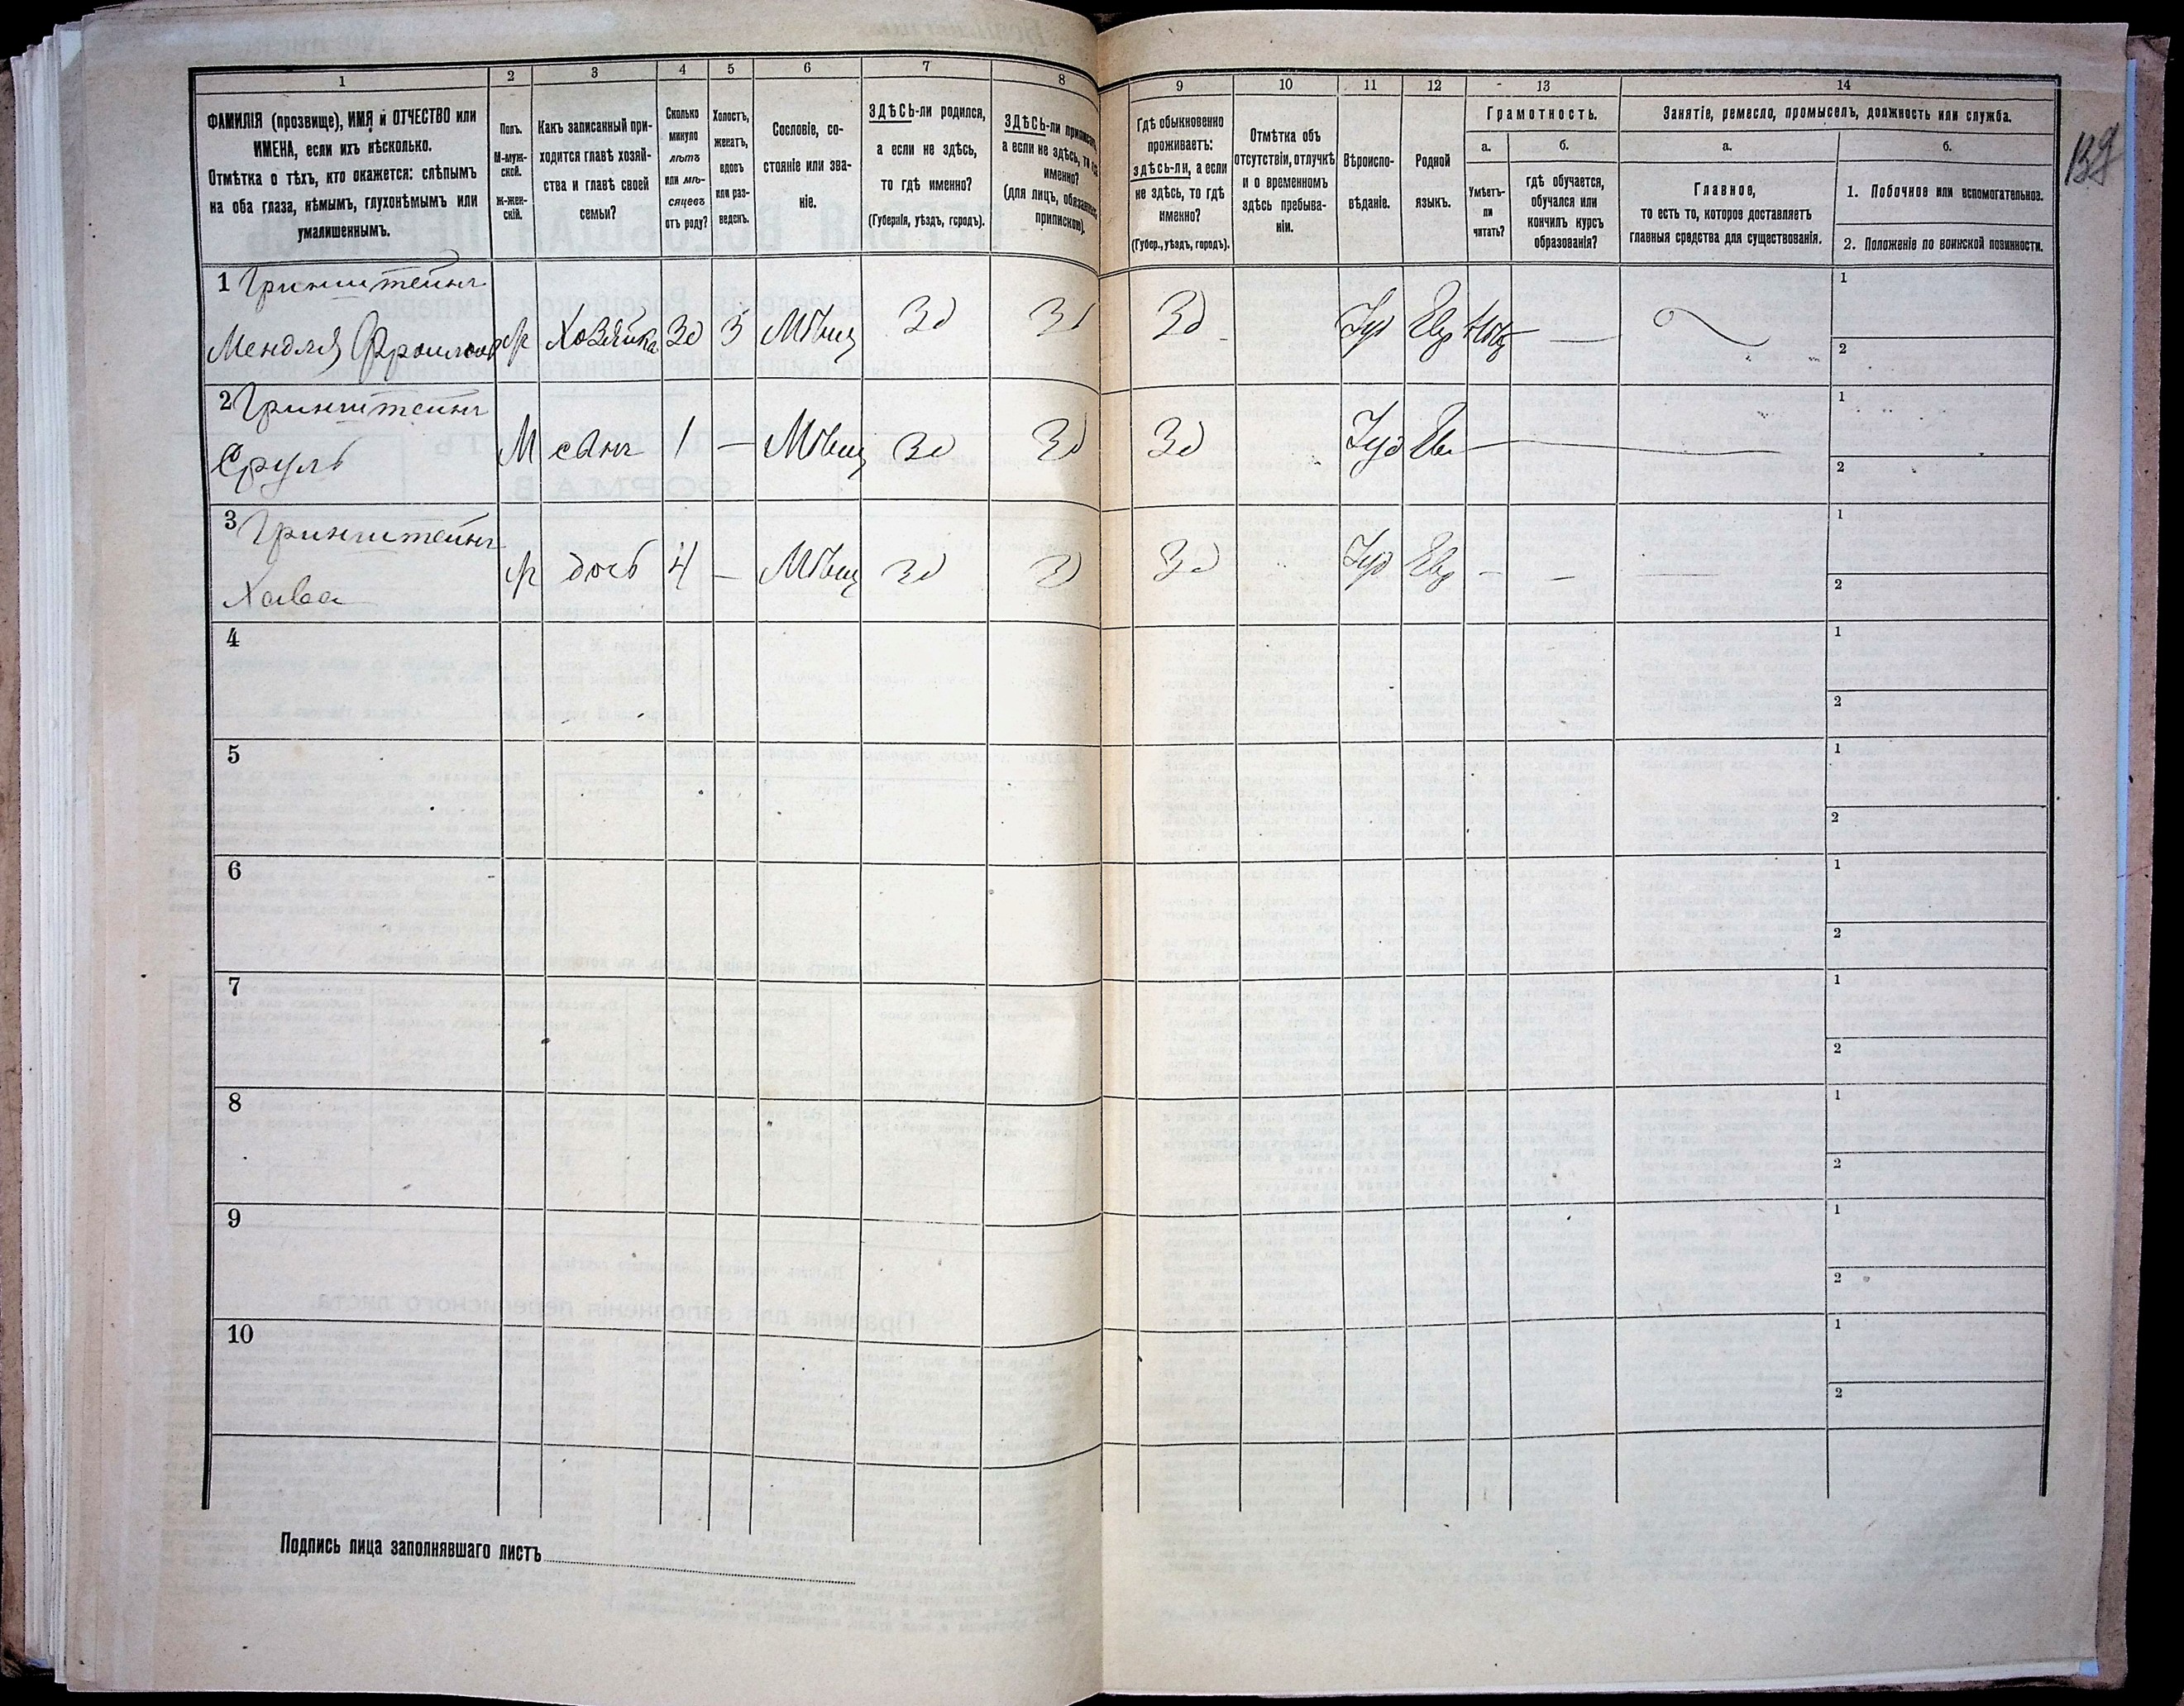 1
2
3
4
5
6
7
8
9
10
11
12
13
14
ФАМИЛІЯ (прозвище), ИМЯ и ОТЧЕСТВО или
ИМЕНА, если ихъ нѣсколько.
Отмѣтка о тѣхъ, кто окажется: слѣпымъ
на оба глаза, нѣмымъ, глухонѣмымъ или
умалишеннымъ.
Полъ.
М-муж-
ской.
ж-жен-
скій.
Какъ записанный при-
ходится главѣ хозяй-
ства и главѣ своей
семьи?
Сколько
минуло
лѣтъ
или мѣ-
сяцевъ
отъ роду?
Холостъ,
женатъ,
вдовъ
или раз-
веденъ.
Сословіе, со-
стояніе или зва-
ніе.
ЗДѢСЬ-ли родился,
а если не здѣсь,
то гдѣ именно?
(Губернія, уѣздъ, городъ).
ЗДѢСЬ-ли
а если не здѣсь, то
именно?
(для лицъ,
припискою).
Гдѣ обыкновенно
проживаетъ:
здѣсь-ли, а если
не здѣсь, то гдѣ
именно?
(Губер., уѣздъ, городъ).
Отмѣтка объ
отсутствіи, отлучкѣ
и о временномъ
здѣсь пребыва-
ніи.
Вѣроиспо-
вѣданіе.
Родной
языкъ.
Грамотность.
а.
Умѣетъ-
ли
читать?
б.
гдѣ обучается,
обучался или
кончилъ курсъ
образованія?
Занятіе, ремесло, промыселъ, должность или служба.
а.
Главное,
то есть то, которое доставляетъ
главныя средства для существованія.
б.
1. Побочное или вспомогательное.
2. Положеніе по воинской повинности.
1 Гринштейнъ
Мендля ж Хозяйка 30 З Мѣщ Зд Зд Зд Іуд Евр Нѣтъ —
1
2
2 Гринштейнъ
Сруль М сынъ 1 — Мѣщ Зд Зд Зд Іуд Ев —
1
2
3 Гринштейнъ
Хава ж дочь 4 — Мѣщ Зд Зд Зд Іуд Евр — — —
1
2
4
1
2
5
1
2
6
1
2
7
1
2
8
1
2
9
1
2
10
1
2
Подпись лица заполнявшаго листъ